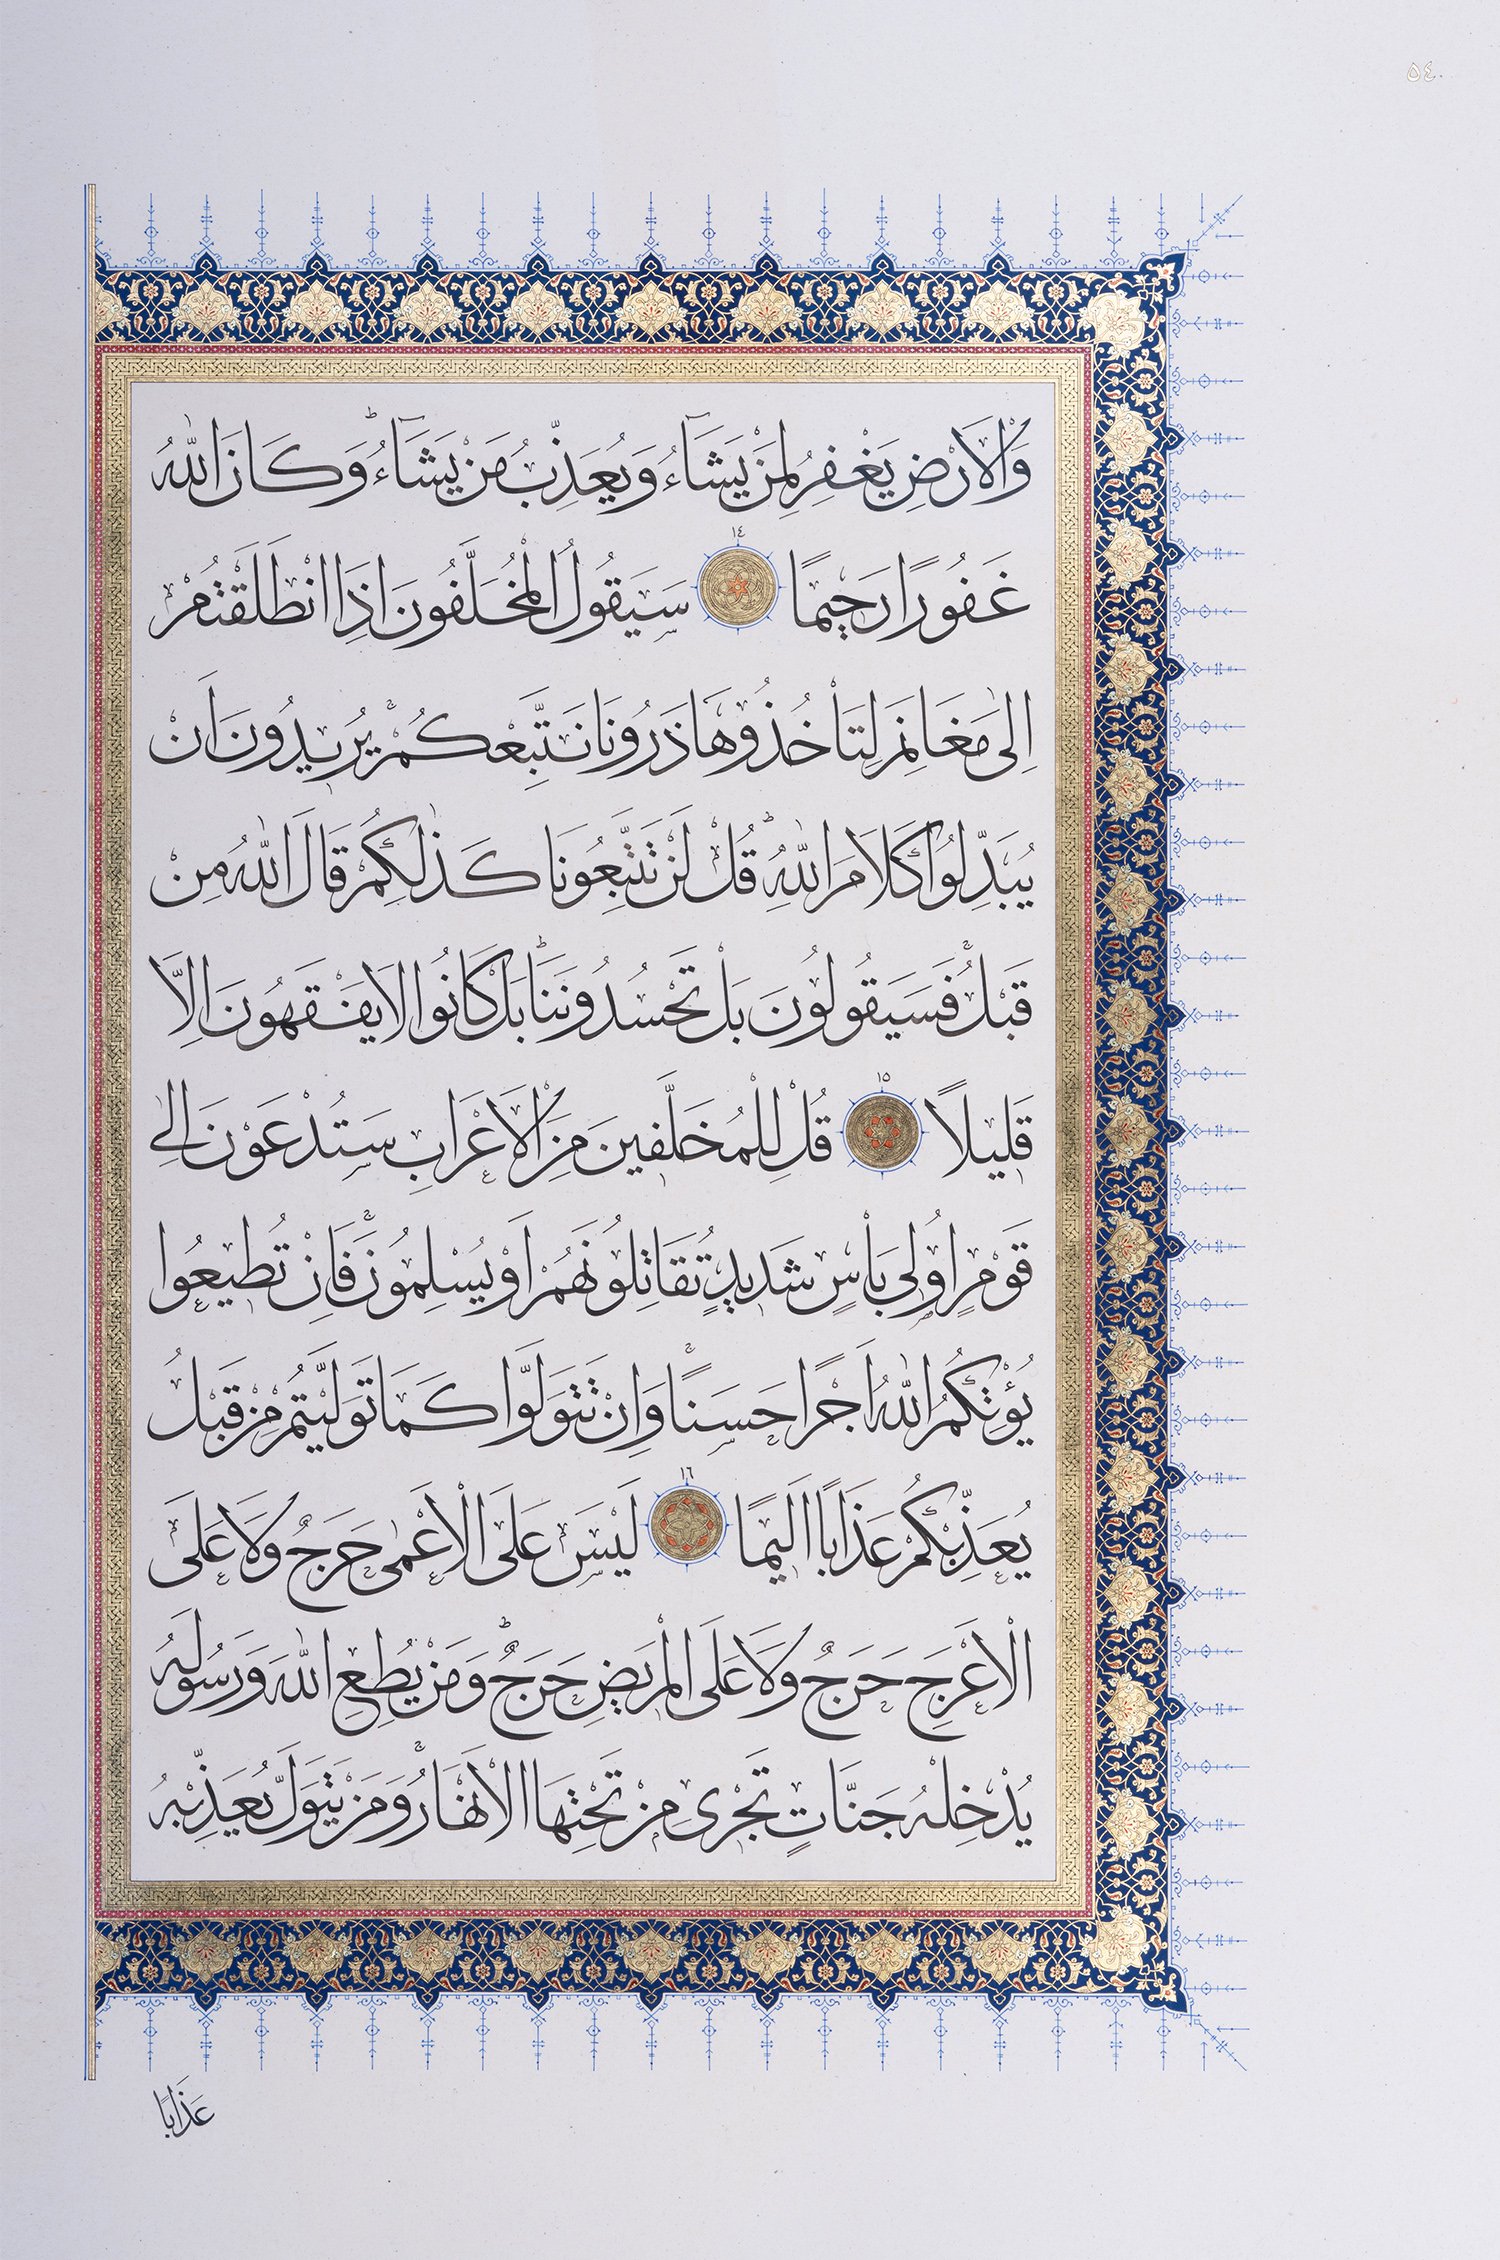 ٥٤٠
وَالْاَرْضِ يَغْفِرُ لِمَنْ يَشَٓاءُ وَيُعَذِّبُ مَنْ يَشَٓاءُ وَكَانَ اللّٰهُ
غَفُورًا رَحِيمًا ١٤ سَيَقُولُ الْمُخَلَّفُونَ اِذَا انْطَلَقْتُمْ
اِلٰى مَغَانِمَ لِتَأْخُذُوهَا ذَرُونَا نَتَّبِعْكُمْ يُرِيدُونَ اَنْ
يُبَدِّلُوا كَلَامَ اللّٰهِ قُلْ لَنْ تَتَّبِعُونَا كَذٰلِكُمْ قَالَ اللّٰهُ مِنْ
قَبْلُ فَسَيَقُولُونَ بَلْ تَحْسُدُونَنَا بَلْ كَانُوا لَا يَفْقَهُونَ اِلَّا
قَلِيلًا ١٥ قُلْ لِلْمُخَلَّفِينَ مِنَ الْاَعْرَابِ سَتُدْعَوْنَ اِلٰى
قَوْمٍ اُولِي بَأْسٍ شَدِيدٍ تُقَاتِلُونَهُمْ اَوْ يُسْلِمُونَ فَاِنْ تُطِيعُوا
يُؤْتِكُمُ اللّٰهُ اَجْرًا حَسَنًا وَاِنْ تَتَوَلَّوْا كَمَا تَوَلَّيْتُمْ مِنْ قَبْلُ
يُعَذِّبْكُمْ عَذَابًا اَلِيمًا ١٦ لَيْسَ عَلَى الْاَعْمٰى حَرَجٌ وَلَا عَلَى
الْاَعْرَجِ حَرَجٌ وَلَا عَلَى الْمَرِيضِ حَرَجٌ وَمَنْ يُطِعِ اللّٰهَ وَرَسُولَهُ
يُدْخِلْهُ جَنَّاتٍ تَجْرِى مِنْ تَحْتِهَا الْاَنْهَارُ وَمَنْ يَتَوَلَّ يُعَذِّبْهُ
عَذَابًا